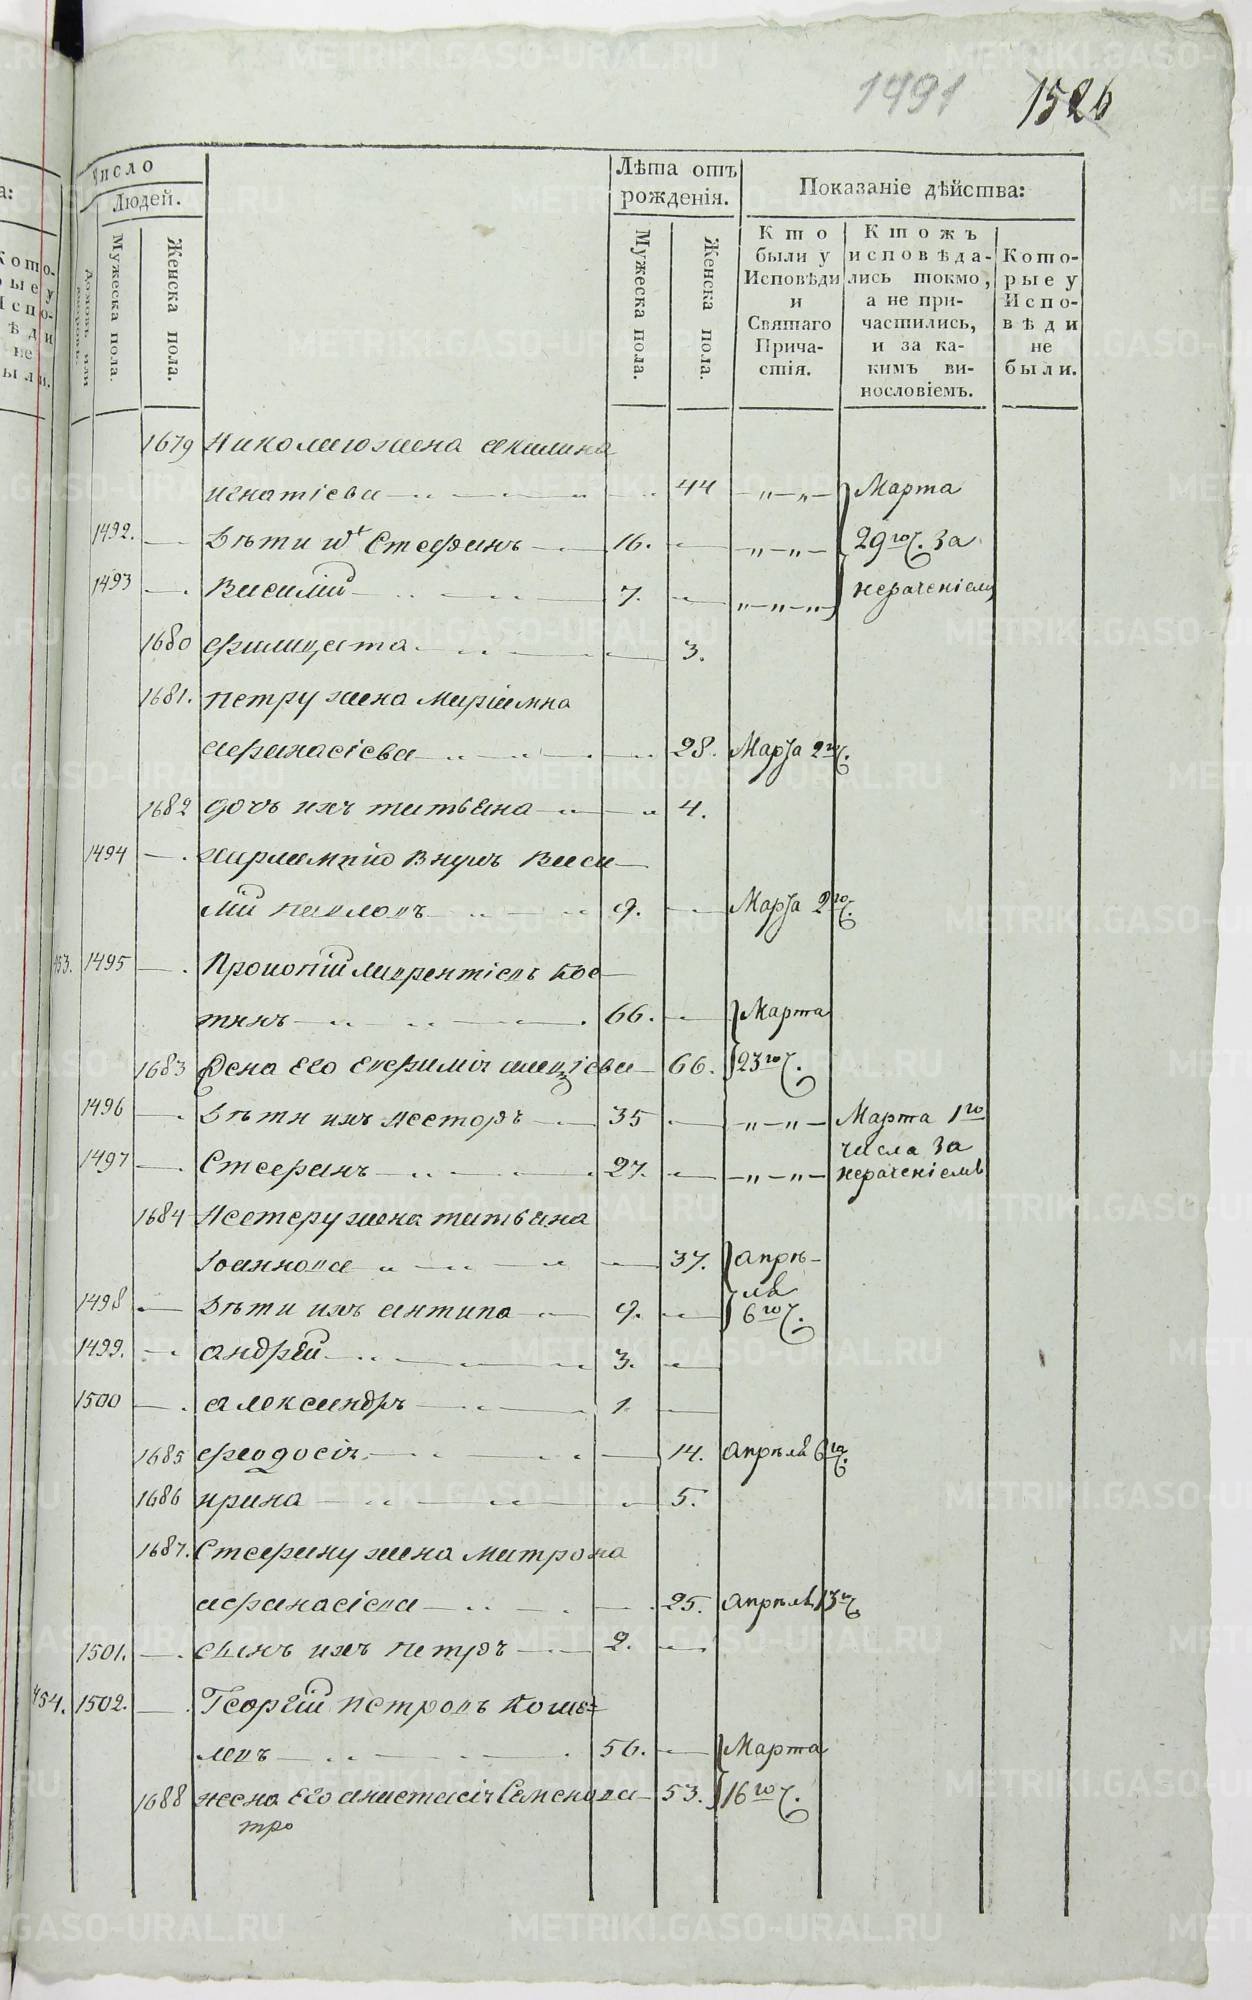 1491 1526
Число
Людей.
Дворовъ или
Мужеска пола.
Женска пола.
Лѣта отъ рожденія.
Мужеска пола.
Женска пола.
Показаніе дѣйства:
Кто были у Исповѣди и Святаго Причастія.
Ктожъ исповѣдались токмо, а не причастились, и за какимъ винословіемъ.
Которые у Исповѣди не были.
1679 Николаю жена акилина
игнатіева 44 Марта
1492. Дѣти ихъ Стефанъ 16. 29го ч. за
1493 Василій 7. нераченіемъ
1680 филицата 3.
1681. петру жена Маріамна
афанасіева 28. Марта 2го ч.
1682 дочь ихъ татьяна 4.
1494 харлампію внукъ Васи
лій павловъ 9. Марта 2го ч.
453. 1495 Прокопій лаврентіевъ Кос
тинъ 66. Марта
1683 Жена Его Евфимія алеѯіева 66. 23го ч.
1496 Дѣти ихъ нестеръ 35 Марта 1го
числа за
1497 Стефанъ 27. нераченіемъ
1684 Нестеру жена татьяна
Іоаннова 37. апрѣ-
ля
1498 Дѣти ихъ антипа 9. 6го ч.
1499. андрей 3.
1500 александръ 1
1685 феодосія 14. апрѣля 6го ч.
1686 ирина 5.
1687. Стефану жена Матрона
афанасіева 25. апрѣля 13го ч.
1501. сынъ ихъ петръ 2.
454. 1502. Георгій петровъ Коше-
левъ 56. Марта
1688 жена Его анастасія Семенова 53. 16го ч.
тро
METRIKI.GASO-URAL.RU